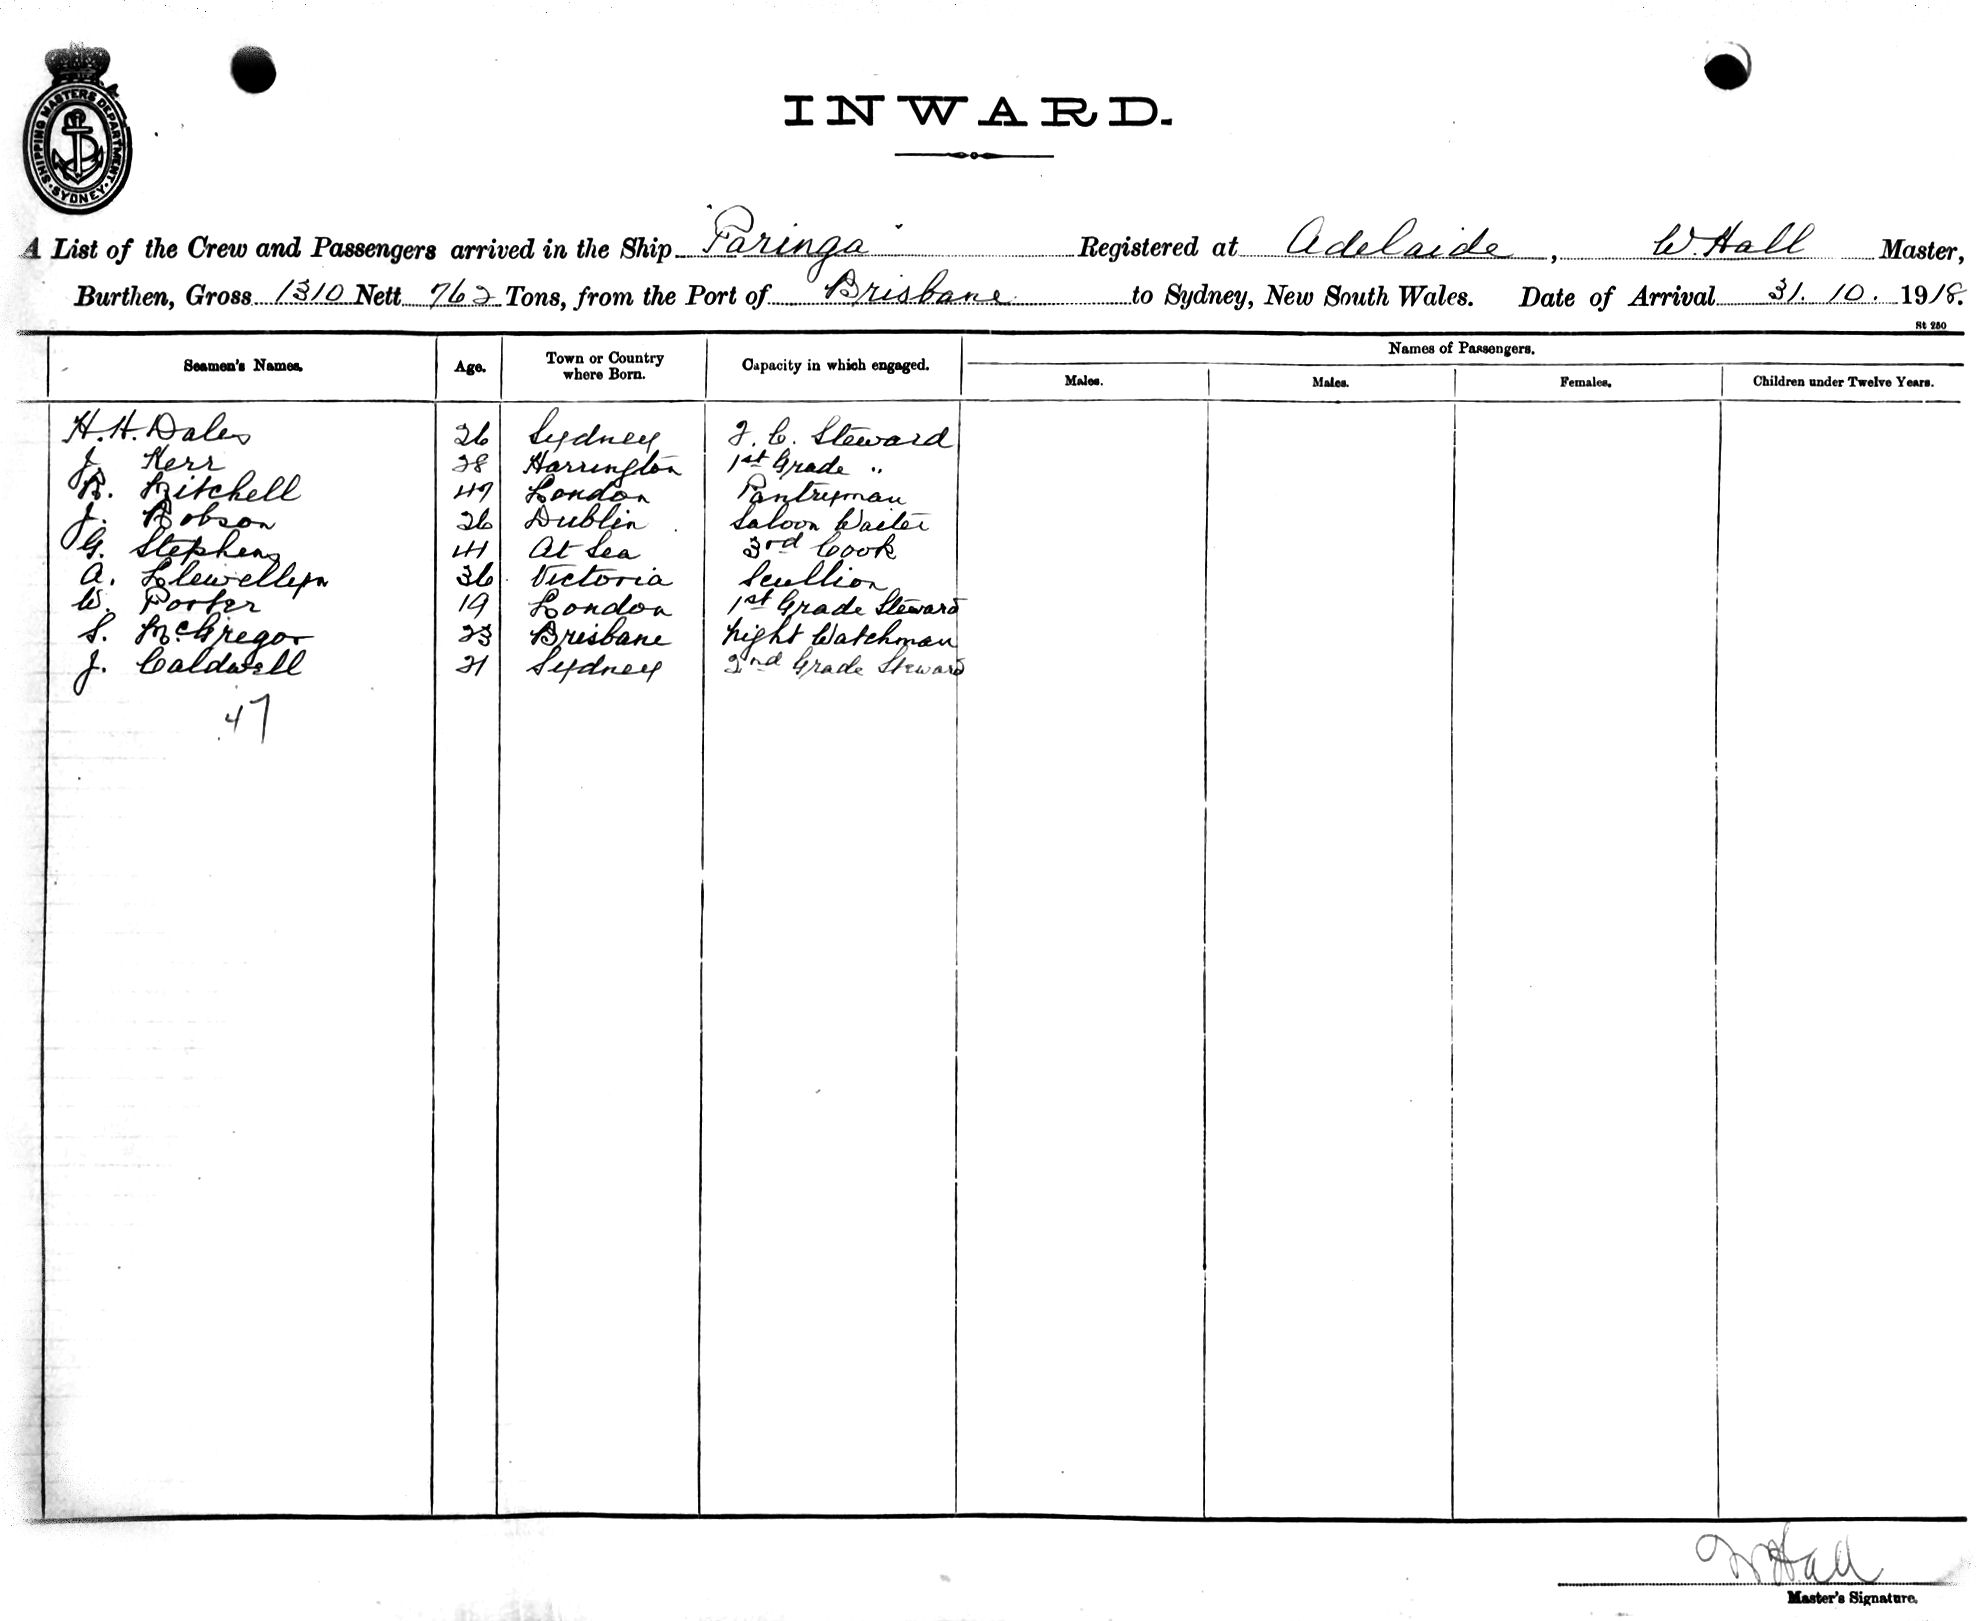 SHIPPING MASTERS DEPARTMENT
SYDNEY
INWARD.
A List of the Crew and Passengers arrived in the Ship "Paringa" Registered at Adelaide, W. Hall Master,
Burthen, Gross 1310 Nett 762 Tons, from the Port of Brisbane to Sydney, New South Wales. Date of Arrival 31. 10. 1918.
St 250
Seamen's Names. Age. Town or Country where Born. Capacity in which engaged. Names of Passengers.
Males. Males. Females. Children under Twelve Years.
H. H. Dales 26 Sydney F. C. Steward
J. Kerr 28 Harrington 1st Grade "
R. Mitchell 47 London Pantryman
J. Robson 26 Dublin Saloon Waiter
G. Stephens 41 At Sea 3rd Cook
A. Llewellyn 36 Victoria Scullion
W. Porter 19 London 1st Grade Steward
S. McGregor 23 Brisbane Night Watchman
J. Caldwell 21 Sydney 2nd Grade Steward
47
W Hall
Master's Signature.